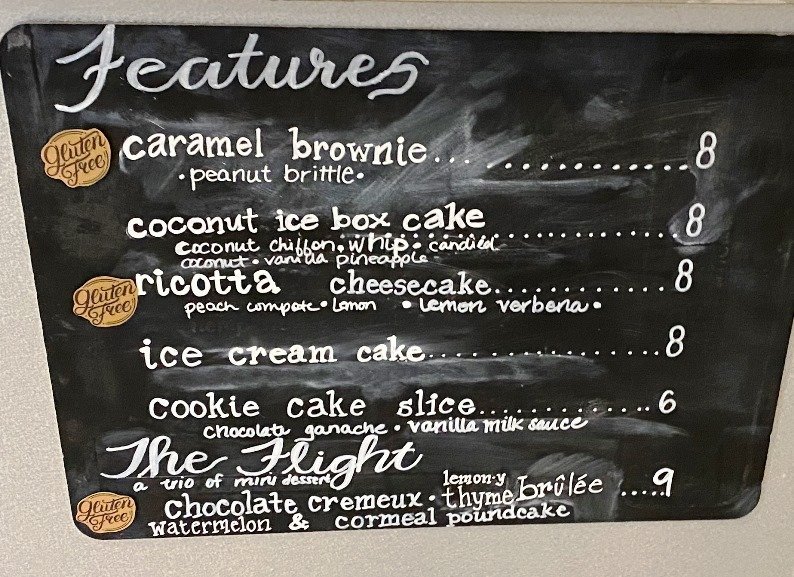 Features
Gluten Free caramel brownie... ............8
•peanut brittle•
coconut ice box cake..................8
coconut chiffon • whip • candied
coconut • vanilla pineapple
Gluten Free ricotta cheesecake............8
peach compote • lemon • lemon verbena •
ice cream cake.................8
cookie cake slice.............6
chocolate ganache • vanilla milk sauce
The Flight
a trio of mini dessert
Gluten Free chocolate cremeux • lemon-y thyme brûlée .....9
watermelon & cormeal poundcake